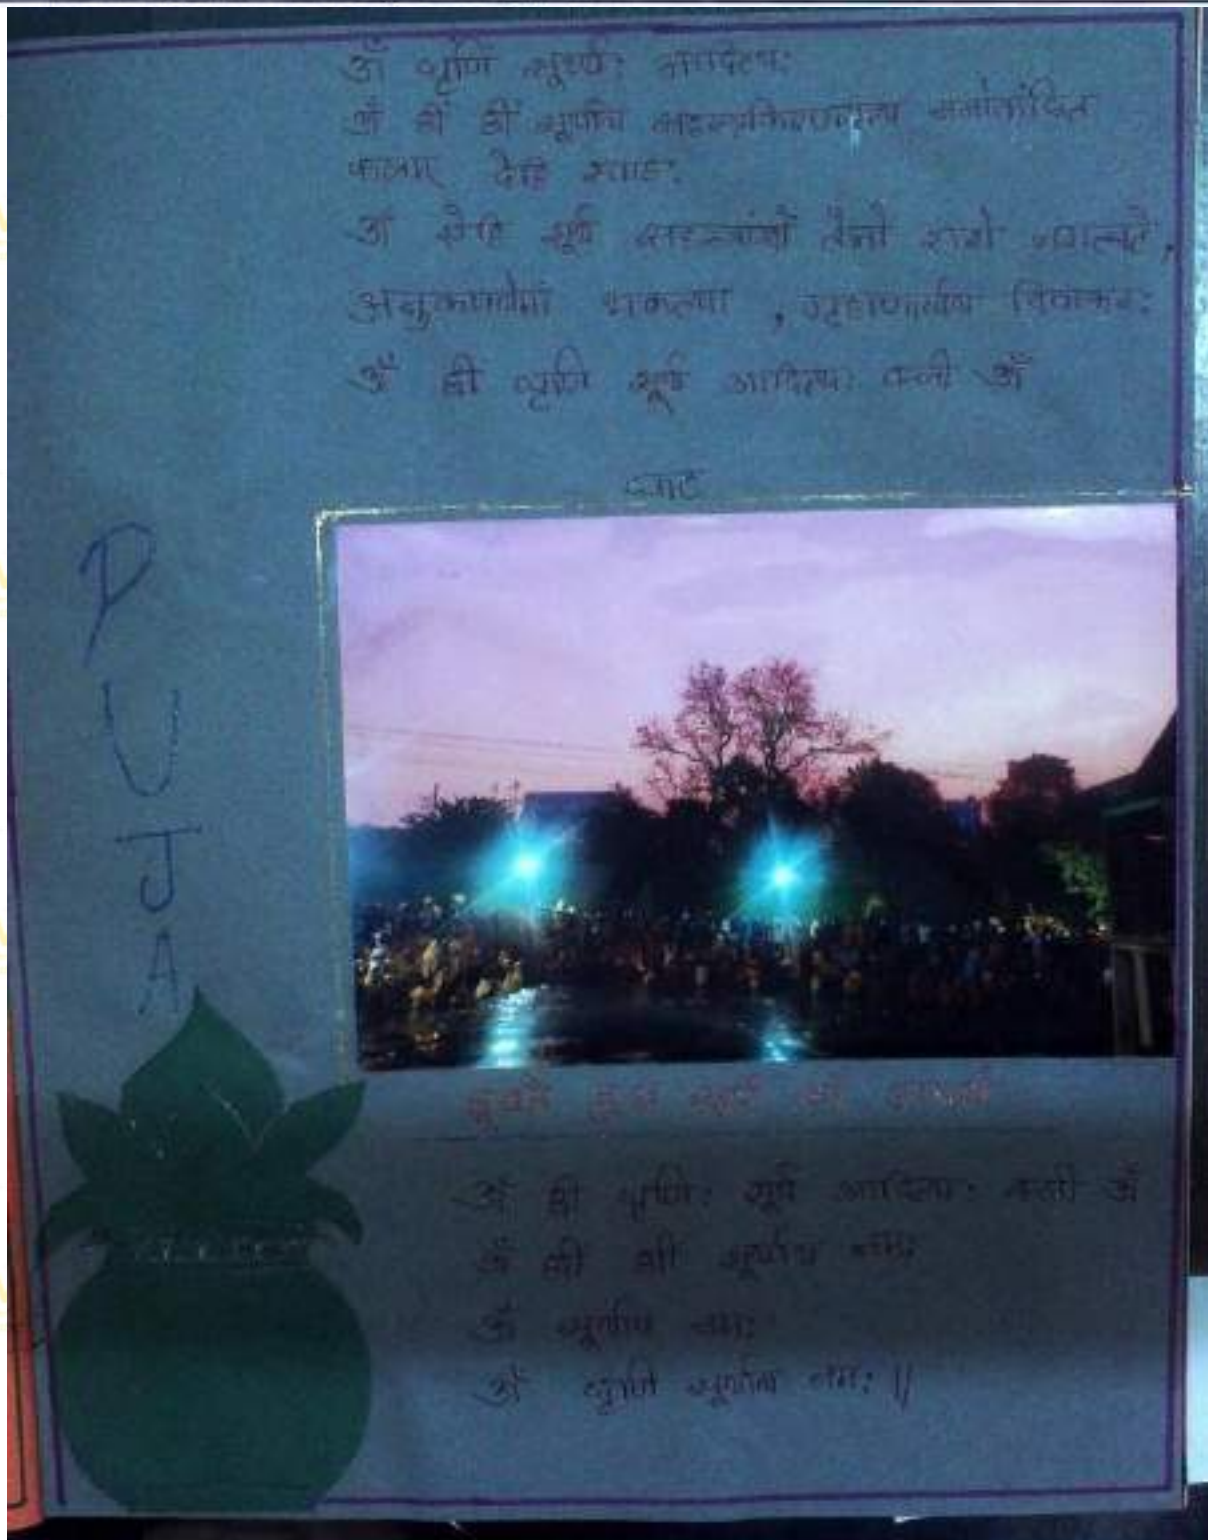 ॐ घृणि सूर्य्यः आदित्यः
ॐ ह्रीं ह्रीं सूर्याय सहस्रकिरणराय मनोवांछित
फलम् देहि स्वाहः
ॐ ऐहि सूर्य सहस्त्रांशों तेजो राशे जगत्पते,
भक्त्या , गृहाणार्घय दिवाकरः
ॐ ह्रीं घृणि सूर्य आदित्यः क्लीं ॐ
घाट
PUJA
ॐ ह्रीं घृणिः सूर्य आदित्यः क्लीं ॐ
ॐ ह्रीं श्रीं सूर्याय नमः
ॐ सूर्याय नमः
ॐ घृणि सूर्याय नमः ||